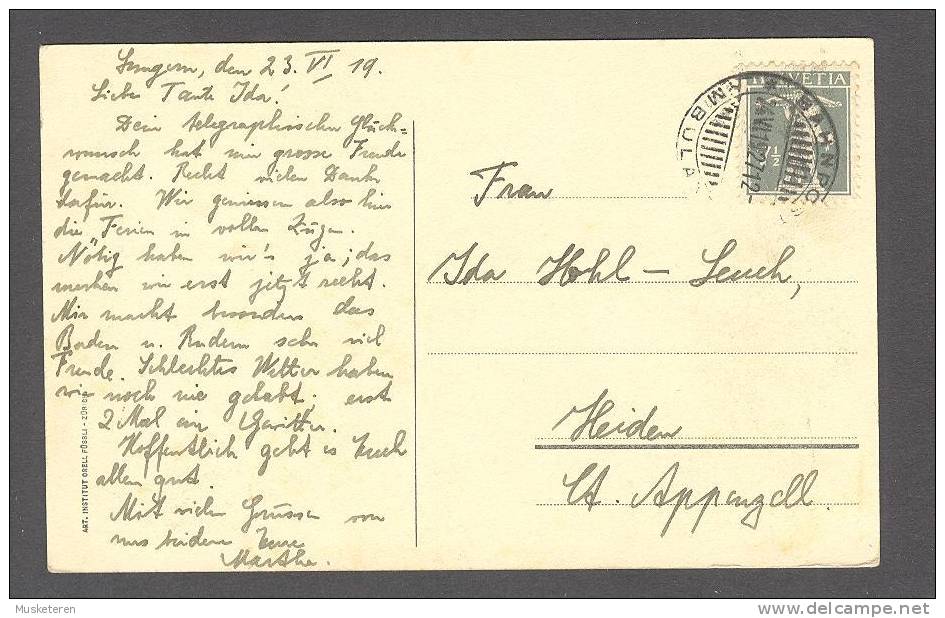 Lungern, den 23. VI 19.
Liebe Tante Ida!
Dein telegraphischer Glück=
wunsch hat mir grosse Freude
gemacht. Recht vielen Dank
dafür. Wir geniessen also hier
die Ferien in vollen Zügen.
Nötig haben wir's ja; das
merken wir erst jetzt recht.
Mir macht besonders das
Baden u. Rudern sehr viel
Freude. Schlechtes Wetter haben
wir noch nie gehabt; erst
2 Mal ein Gewitter.
Hoffentlich geht es Euch
allen gut.
Mit vielen Grüssen von
uns beiden Eure
Marthe.
ART. INSTITUT ORELL FÜSSLI - ZÜRICH
HELVETIA
7 1/2
BAHNPOST
AMBULA
Frau
Ida Hohl – Leuch,
Heiden
Ct. Appenzell.
Musketeren
delcampe.net